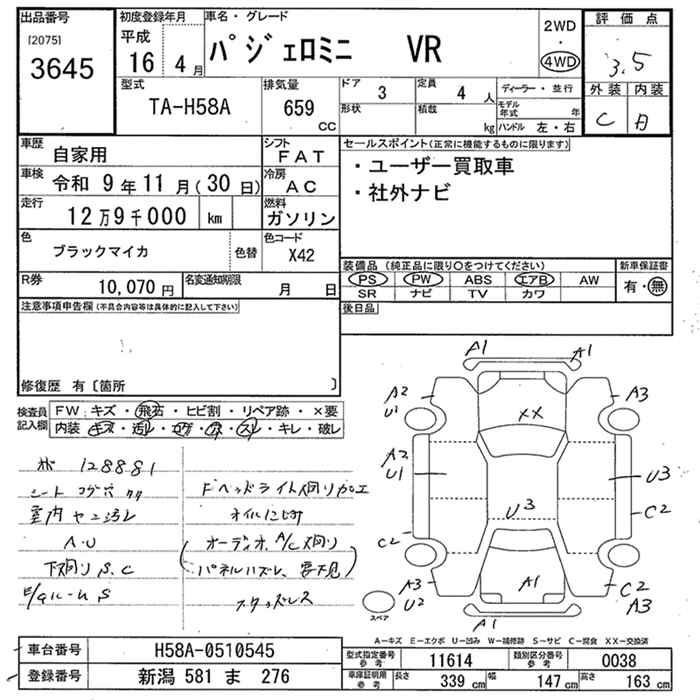 出品番号
[2075]
3645
初度登録年月
平成
16 4 月
車名・グレード
パジェロミニ VR
2WD
・
4WD
評価点
3.5
外装 内装
C
型式
TA-H58A
排気量
659
cc
ドア
3
形状
定員
4 人
積載
kg
ディーラー・並行
モデル年式 年
ハンドル 左・右
車歴
自家用
シフト
FAT
車検
令和 9 年 11 月(30 日)
冷房
AC
走行
12万9千000 km
燃料
ガソリン
色
ブラックマイカ
色替
色コード
X42
R券
10,070 円
名変通知期限
月 日
セールスポイント(正常に機能するものに限ります)
・ユーザー買取車
・社外ナビ
装備品(純正品に限り○をつけてください)
PS PW ABS エアB AW
SR ナビ TV カワ
新車保証書
有・無
後日品
注意事項申告欄(不具合内容等は具体的に記入して下さい)
修復歴 有〔箇所 〕
検査員記入欄
FW:キズ・飛石・ヒビ割・リペア跡・×要
内装:キズ・汚レ・コゲ・穴・スレ・キレ・破レ
128881
シート コゲ穴
室内ヤニ汚レ
下回りS、C
Fヘッドライト回り加工
オイルにじみ
オーディオ、A/C回り
パネルハズレ、
スタッドレス
A1
A1
A2
U1
A3
XX
A2
U1
U3
U3
C2
C2
A3
U2
A1
C2
A3
A1
スペア
A―キズ E―エクボ U―凹み W―補修跡 S―サビ C―腐食 XX―交換済
車台番号
H58A-0510545
登録番号
新潟 581 ま 276
型式指定番号
参考
11614
類別区分番号
参考
0038
車庫証明用
参考
長さ
339 cm
幅
147 cm
高さ
163 cm